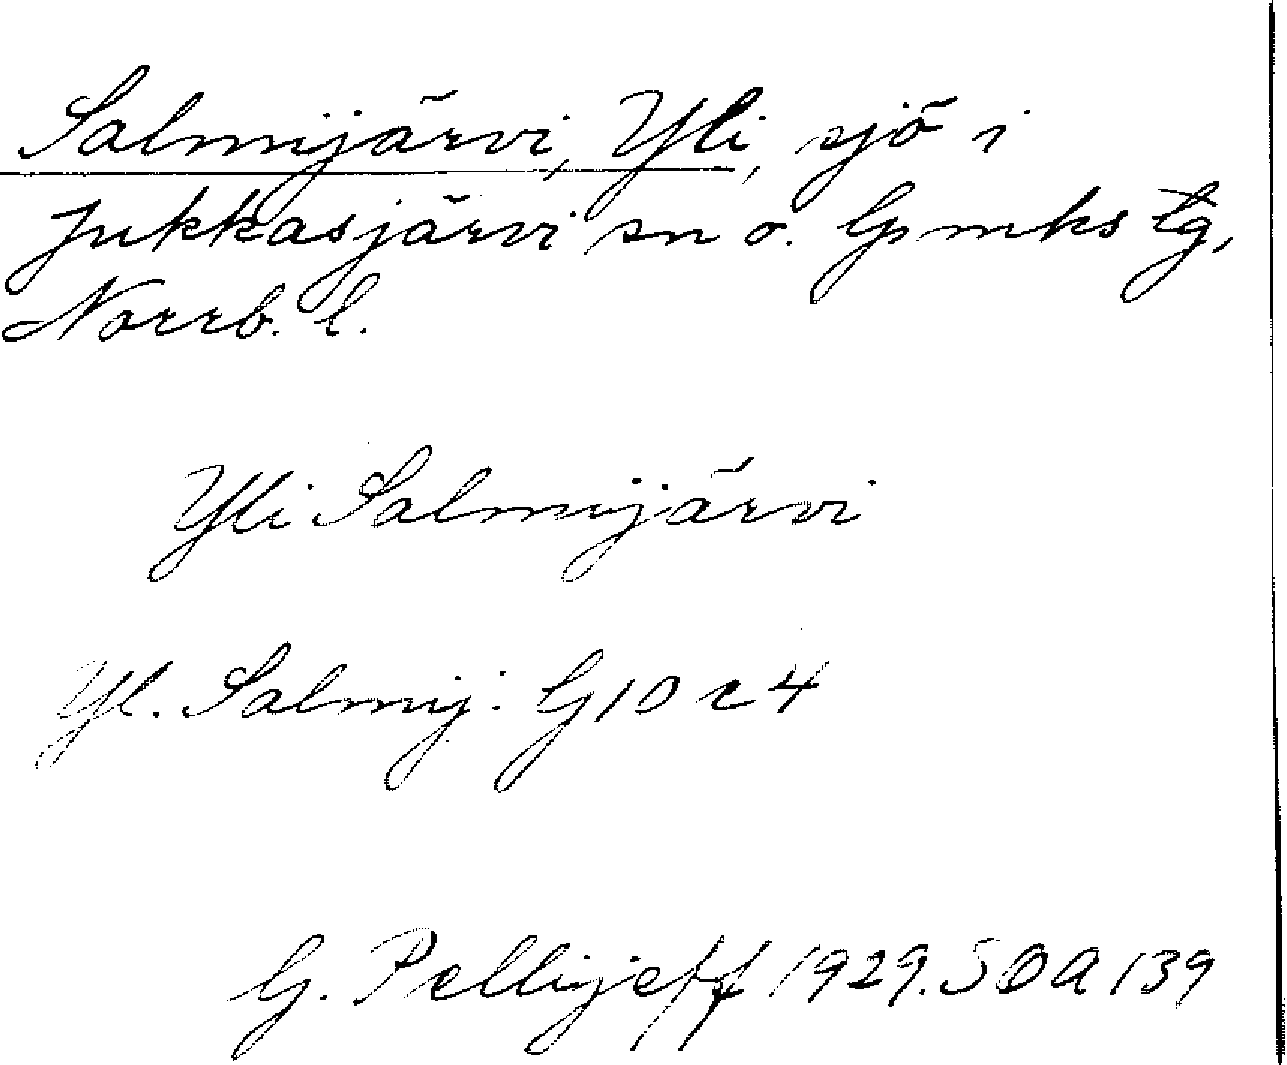 Salmijärvi, Yli, sjö i
Jukkasjärvi sn o. Gsmks tg,
Norrb. l.
Yli Salmijärvi
Yl. Salmij: G10 c 4
G. Pellijeff 1929. SOA 139